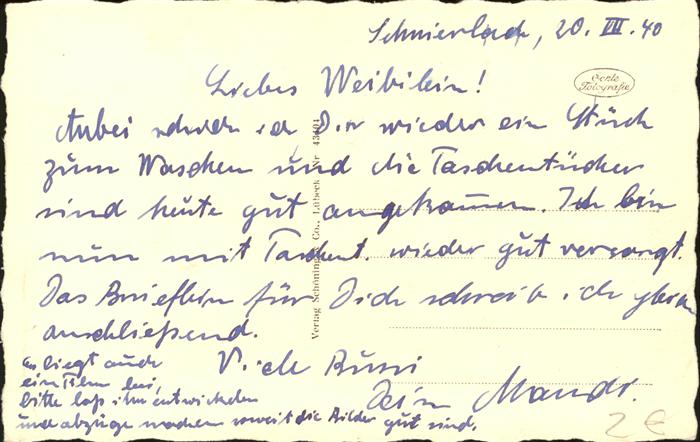 Schnierlach, 20. VII. 40
Liebes Weibilein!
Echte
Fotografie
Anbei schicke ich Dir wieder ein Stück
zum Waschen und die Taschentücher
sind heute gut angekommen. Ich bin
nun mit Taschent. wieder gut versorgt.
Das Brieflein für Dich schreib ich gleich
anschließend.
Viele Bussi
Dein Mandi.
Es liegt auch
ein Film bei,
bitte laß ihn entwickeln
und abzüge machen soweit die Bilder gut sind.
Verlag Schöning & Co., Lübeck Nr 43494
2 €